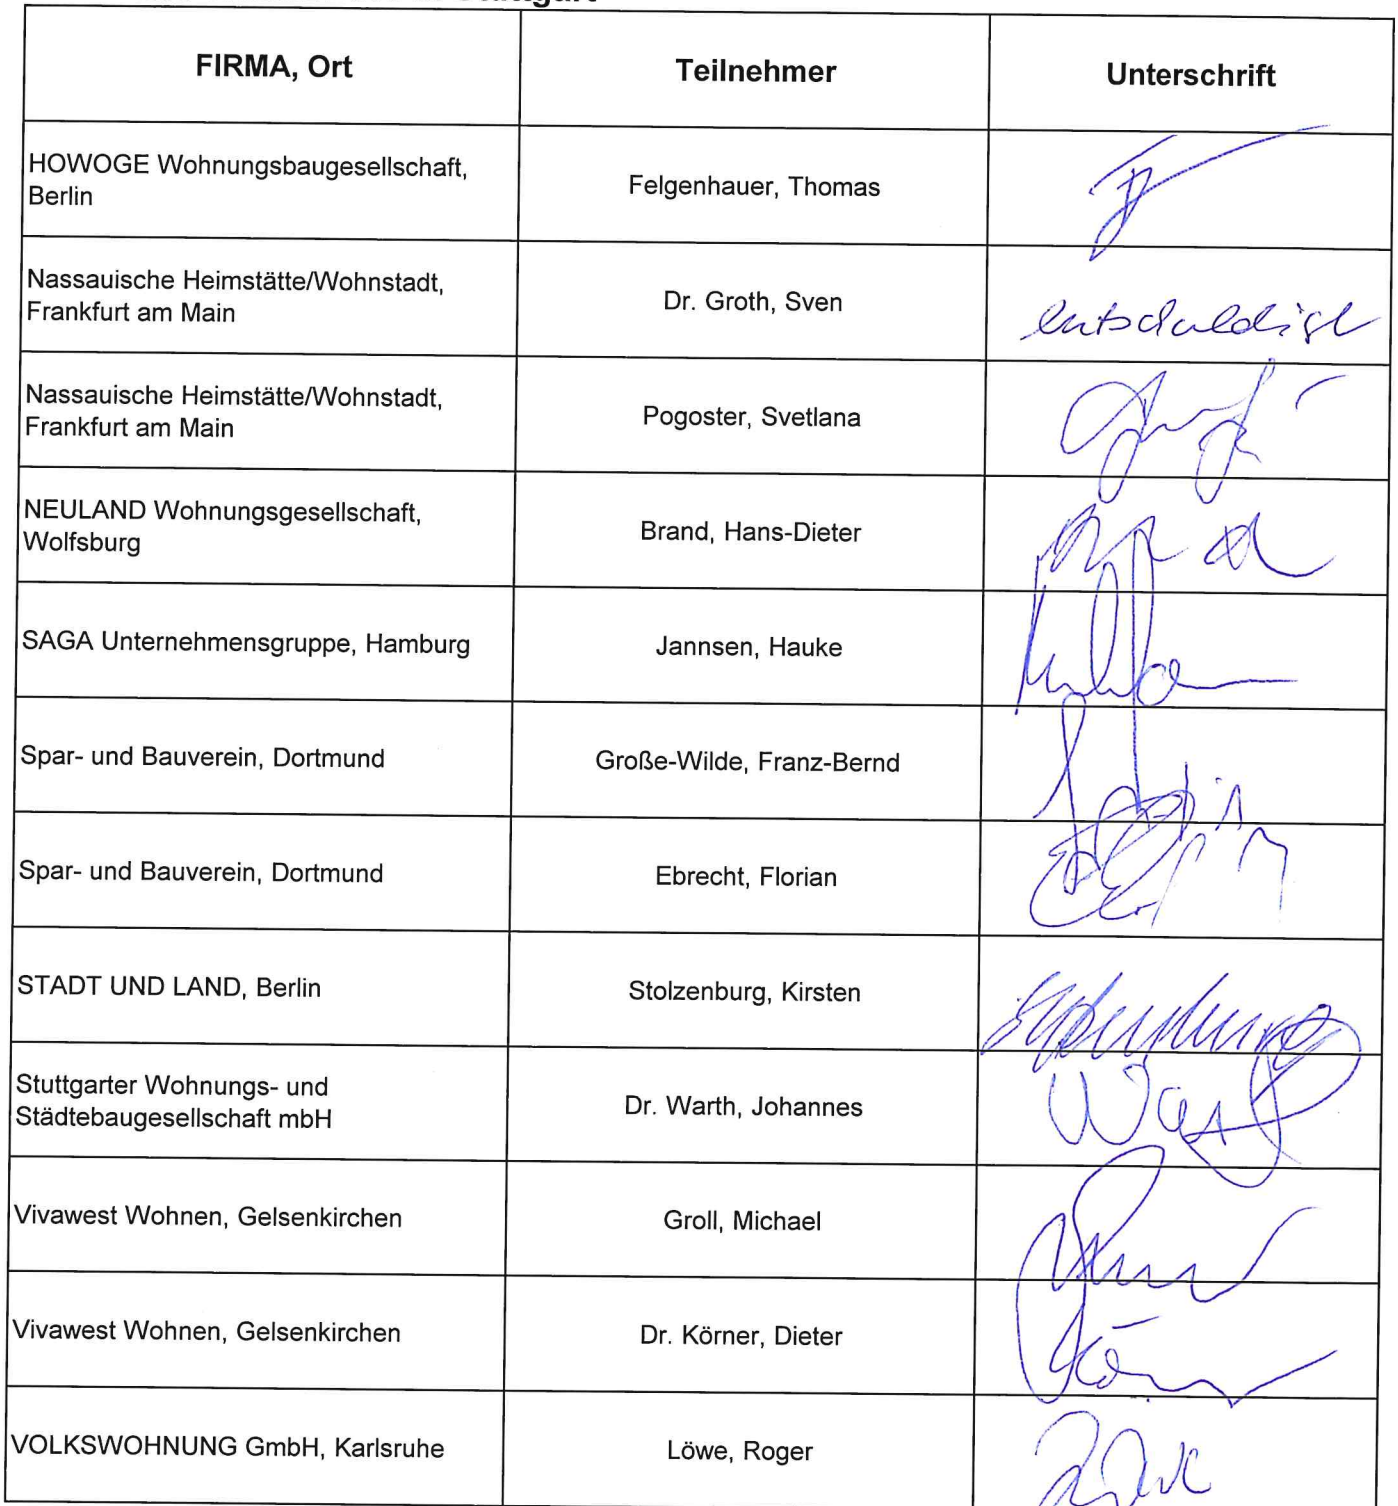 FIRMA, Ort Teilnehmer Unterschrift
HOWOGE Wohnungsbaugesellschaft,
Berlin
Felgenhauer, Thomas
Nassauische Heimstätte/Wohnstadt,
Frankfurt am Main
Dr. Groth, Sven
entschuldigt
Nassauische Heimstätte/Wohnstadt,
Frankfurt am Main
Pogoster, Svetlana
NEULAND Wohnungsgesellschaft,
Wolfsburg
Brand, Hans-Dieter
SAGA Unternehmensgruppe, Hamburg
Jannsen, Hauke
Spar- und Bauverein, Dortmund
Große-Wilde, Franz-Bernd
Spar- und Bauverein, Dortmund
Ebrecht, Florian
STADT UND LAND, Berlin
Stolzenburg, Kirsten
Stuttgarter Wohnungs- und
Städtebaugesellschaft mbH
Dr. Warth, Johannes
Vivawest Wohnen, Gelsenkirchen
Groll, Michael
Vivawest Wohnen, Gelsenkirchen
Dr. Körner, Dieter
VOLKSWOHNUNG GmbH, Karlsruhe
Löwe, Roger